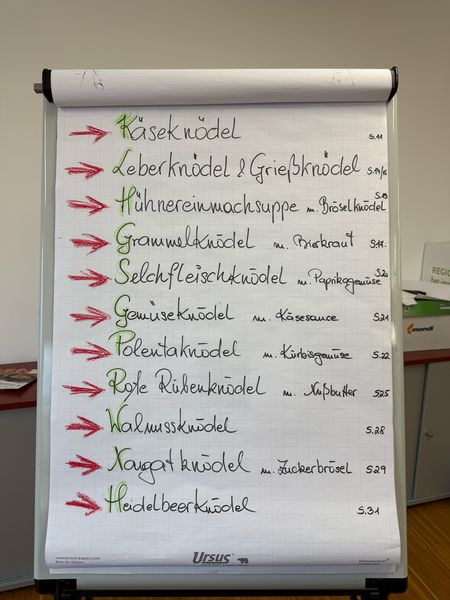 Käseknödel S.11
Leberknödel & Grießknödel S.14/15
Hühnereinmachsuppe m. Bröselknödel S.13
Grammelknödel m. Bierkraut S.18.
Selchfleischknödel m. Paprikagemüse S.20
Gemüseknödel m. Käsesauce S.21
Polentaknödel m. Kürbisgemüse S.22
Rote Rübenknödel m. Nußbutter S25
Walnussknödel S.28
Nougatknödel m. Zuckerbrösel S29
Heidelbeerknödel S.31
Ursus
REGIO
mandl